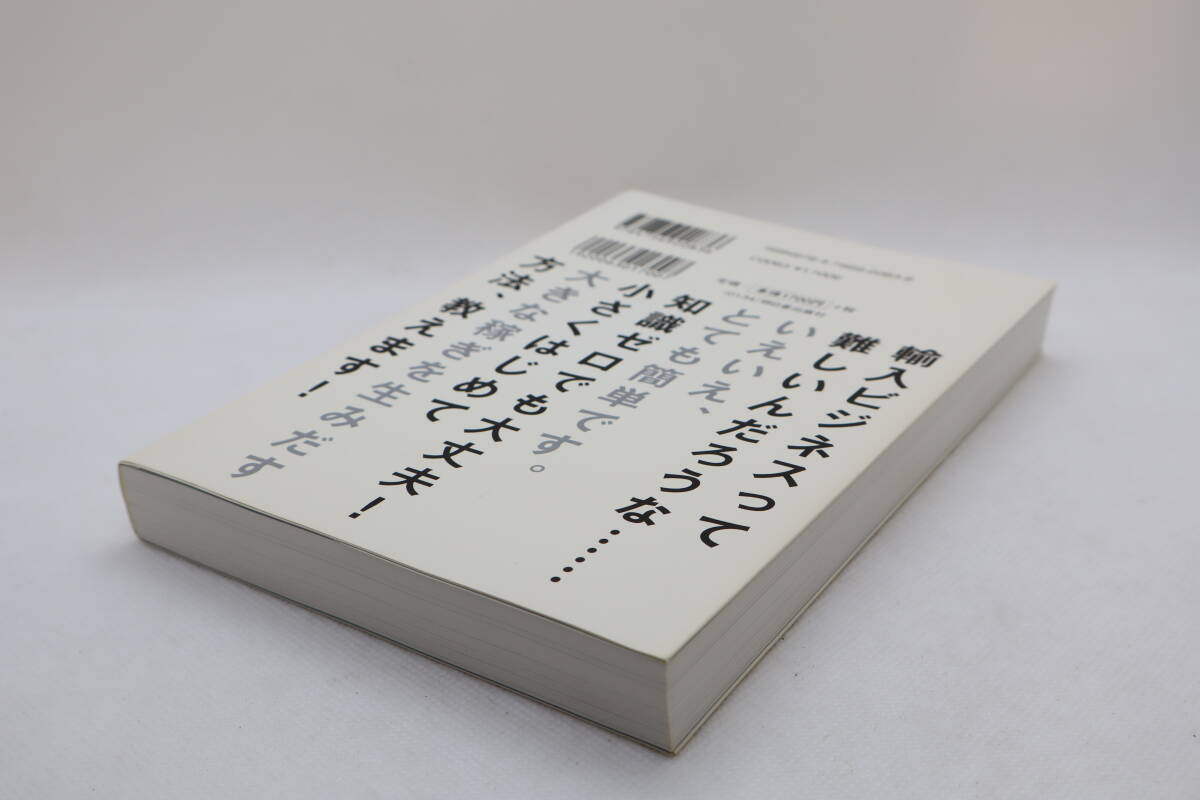 輸入ビジネスって
難しいんだろうな……
いえいえ、
とても簡単です。
知識ゼロでも大丈夫！
小さくはじめて
大きな稼ぎを生みだす
方法、教えます！
定価 本体1700円 +税